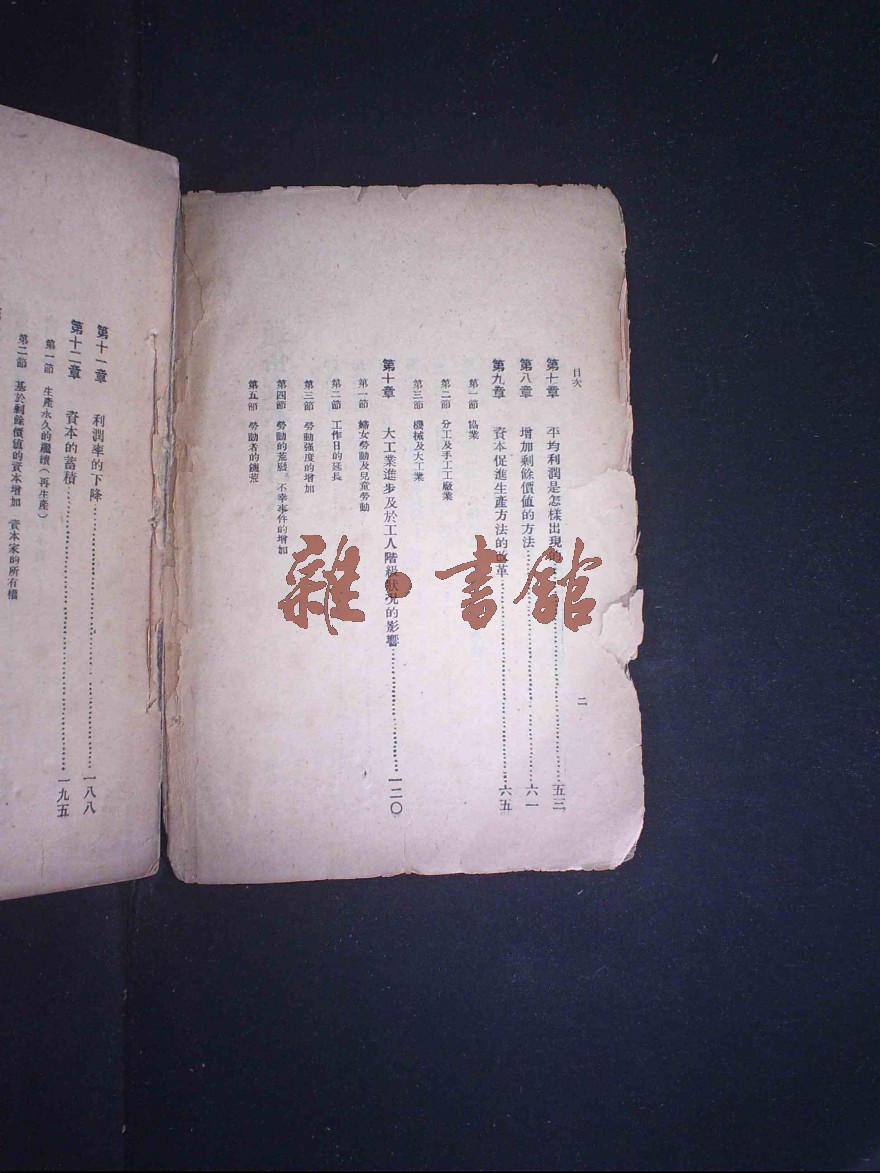 目次
二
第七章 平均利潤是怎樣出現的……五三
第八章 增加剩餘價値的方法……六一
第九章 資本促進生產方法的改革……六五
第一節 協業
第二節 分工及手工工廠業
第三節 機械及大工業
第十章 大工業進步及於工人階級狀況的影響……一二〇
第一節 婦女勞動及兒童勞動
第二節 工作日的延長
第三節 勞動強度的增加
第四節 勞動的荒廢 不幸事件的增加
第五節 勞動者的饑荒
第十一章 利潤率的下降……一八八
第十二章 資本的蓄積……一九五
第一節 生產永久的繼續(再生產)
第二節 基於剩餘價値的資本增加 資本家的所有權
雜·書館